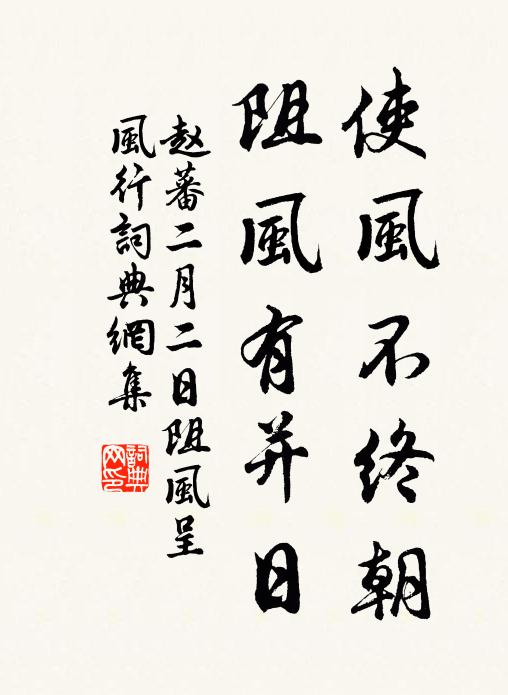 使風不終朝
阻風有并日
赵蕃二月二日阻風呈
風行詞典網集
詞典
网印